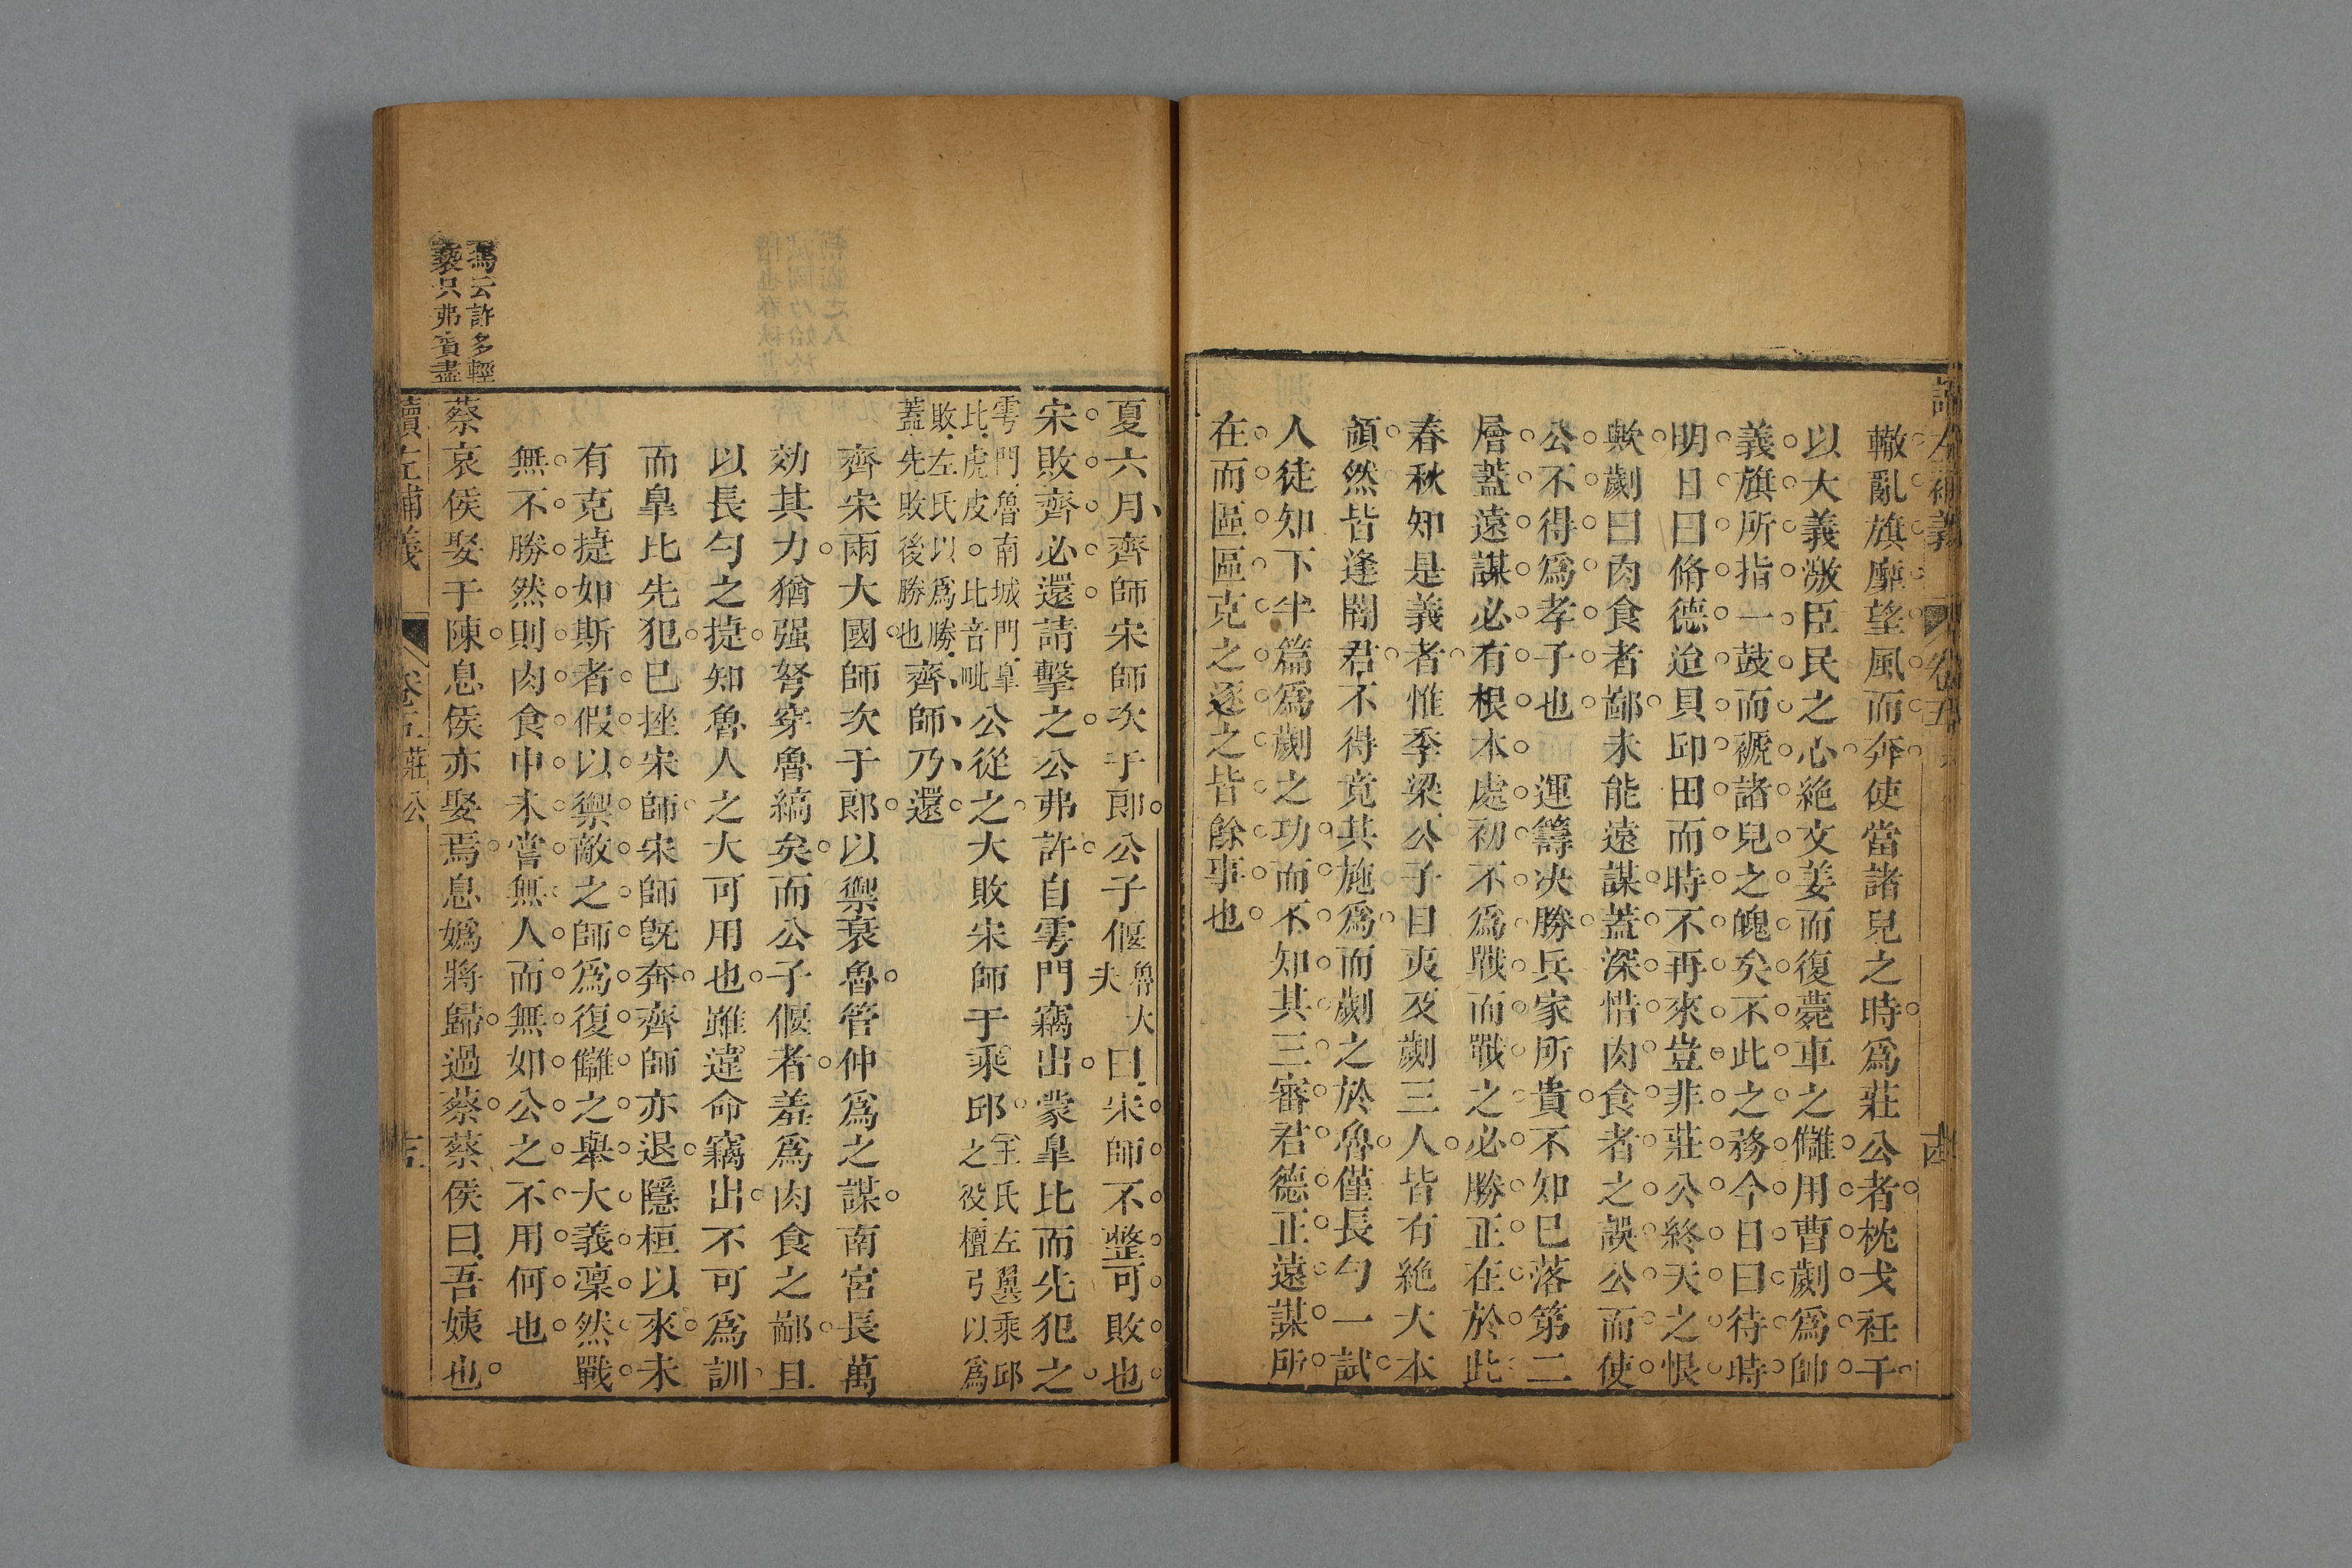 讀左補義 卷五 古
轍亂旗靡望風而奔使當諸兒之時爲莊公者枕戈衽干
以大義激臣民之心絶文姜而復薨車之讎用曹劌爲帥
義旗所指一鼓而褫諸兒之魄矣不此之務今日曰待時
明日曰脩德迨貝邱田而時不再來豈非莊公終天之恨
歟劌曰肉食者鄙未能遠謀蓋深惜肉食者之誤公而使
公不得爲孝子也 運籌决勝兵家所貴不知已落第二
層蓋遠謀必有根本處初不爲戰而戰之必勝正在於此
春秋知是義者惟季梁公子目夷及劌三人皆有絶大本
領然皆逢闇君不得竟其施爲而劌之於魯僅長勺一試
人徒知下半篇爲劌之功而不知其三審君德正遠謀所
在而區區克之逐之皆餘事也
夏六月齊師宋師次于郎公子偃魯大夫曰宋師不整可敗也
宋敗齊必還請擊之公弗許自雩門竊出蒙臯比而先犯之
雩門魯南城門臯比虎皮 比音毗公從之大敗宋師于乘邱全氏左翼乘邱之役檀弓以爲
敗左氏以爲勝蓋先敗後勝也齊師乃還
齊宋兩大國師次于郎以禦衰魯管仲爲之謀南宮長萬
効其力猶强弩穿魯縞矣而公子偃者羞爲肉食之鄙且
以長勺之捷知魯人之大可用也雖違命竊出不可爲訓
而臯比先犯已挫宋師宋師既奔齊師亦退隱桓以來未
有克捷如斯者假以禦敵之師爲復讎之舉大義凜然戰
無不勝然則肉食中未嘗無人而無如公之不用何也
蔡哀侯娶于陳息侯亦娶焉息嬀將歸過蔡蔡侯曰吾姨也
馮云許多輕
褻只弗賓盡
讀左補義 卷五 莊公